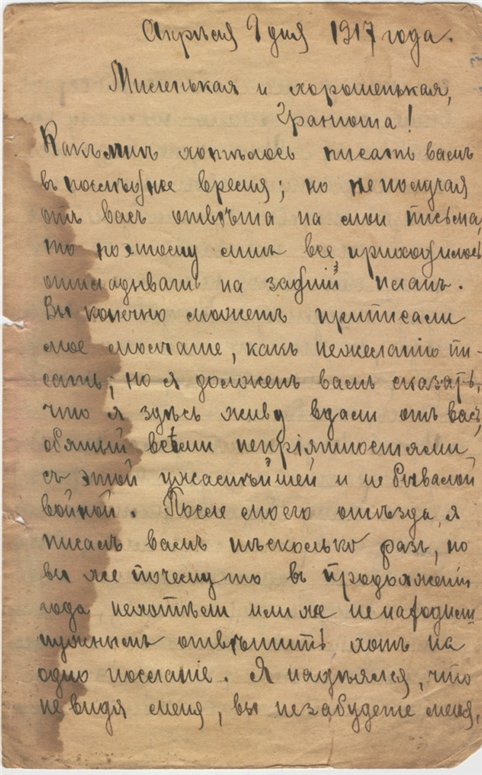 Апрѣля 9 дня 1917 года.
Миленькая и хорошенькая,
Граниоша!
Какъ мнѣ хотѣлось писать вамъ
въ послѣднее время; но не получая
отъ васъ отвѣта на мои письма,
то поэтому мнѣ все приходилось
откладывать на задній планъ.
Вы конечно можетъ приписали
мое молчаніе, какъ нежеланію пи-
сать; но я долженъ вамъ сказать,
что я здѣсь живу вдали отъ васъ,
объятый всѣми непріятностями
съ этой ужаснѣйшей и не бывалой
войной. После моего отъѣзда, я
писалъ вамъ нѣсколько разъ, но
вы же почему то въ продолженіи
года нехотѣли или же ненаходили
нужнымъ отвѣтить хоть на
одно посланіе. Я надѣялся, что
не видя меня, вы незабудете меня,